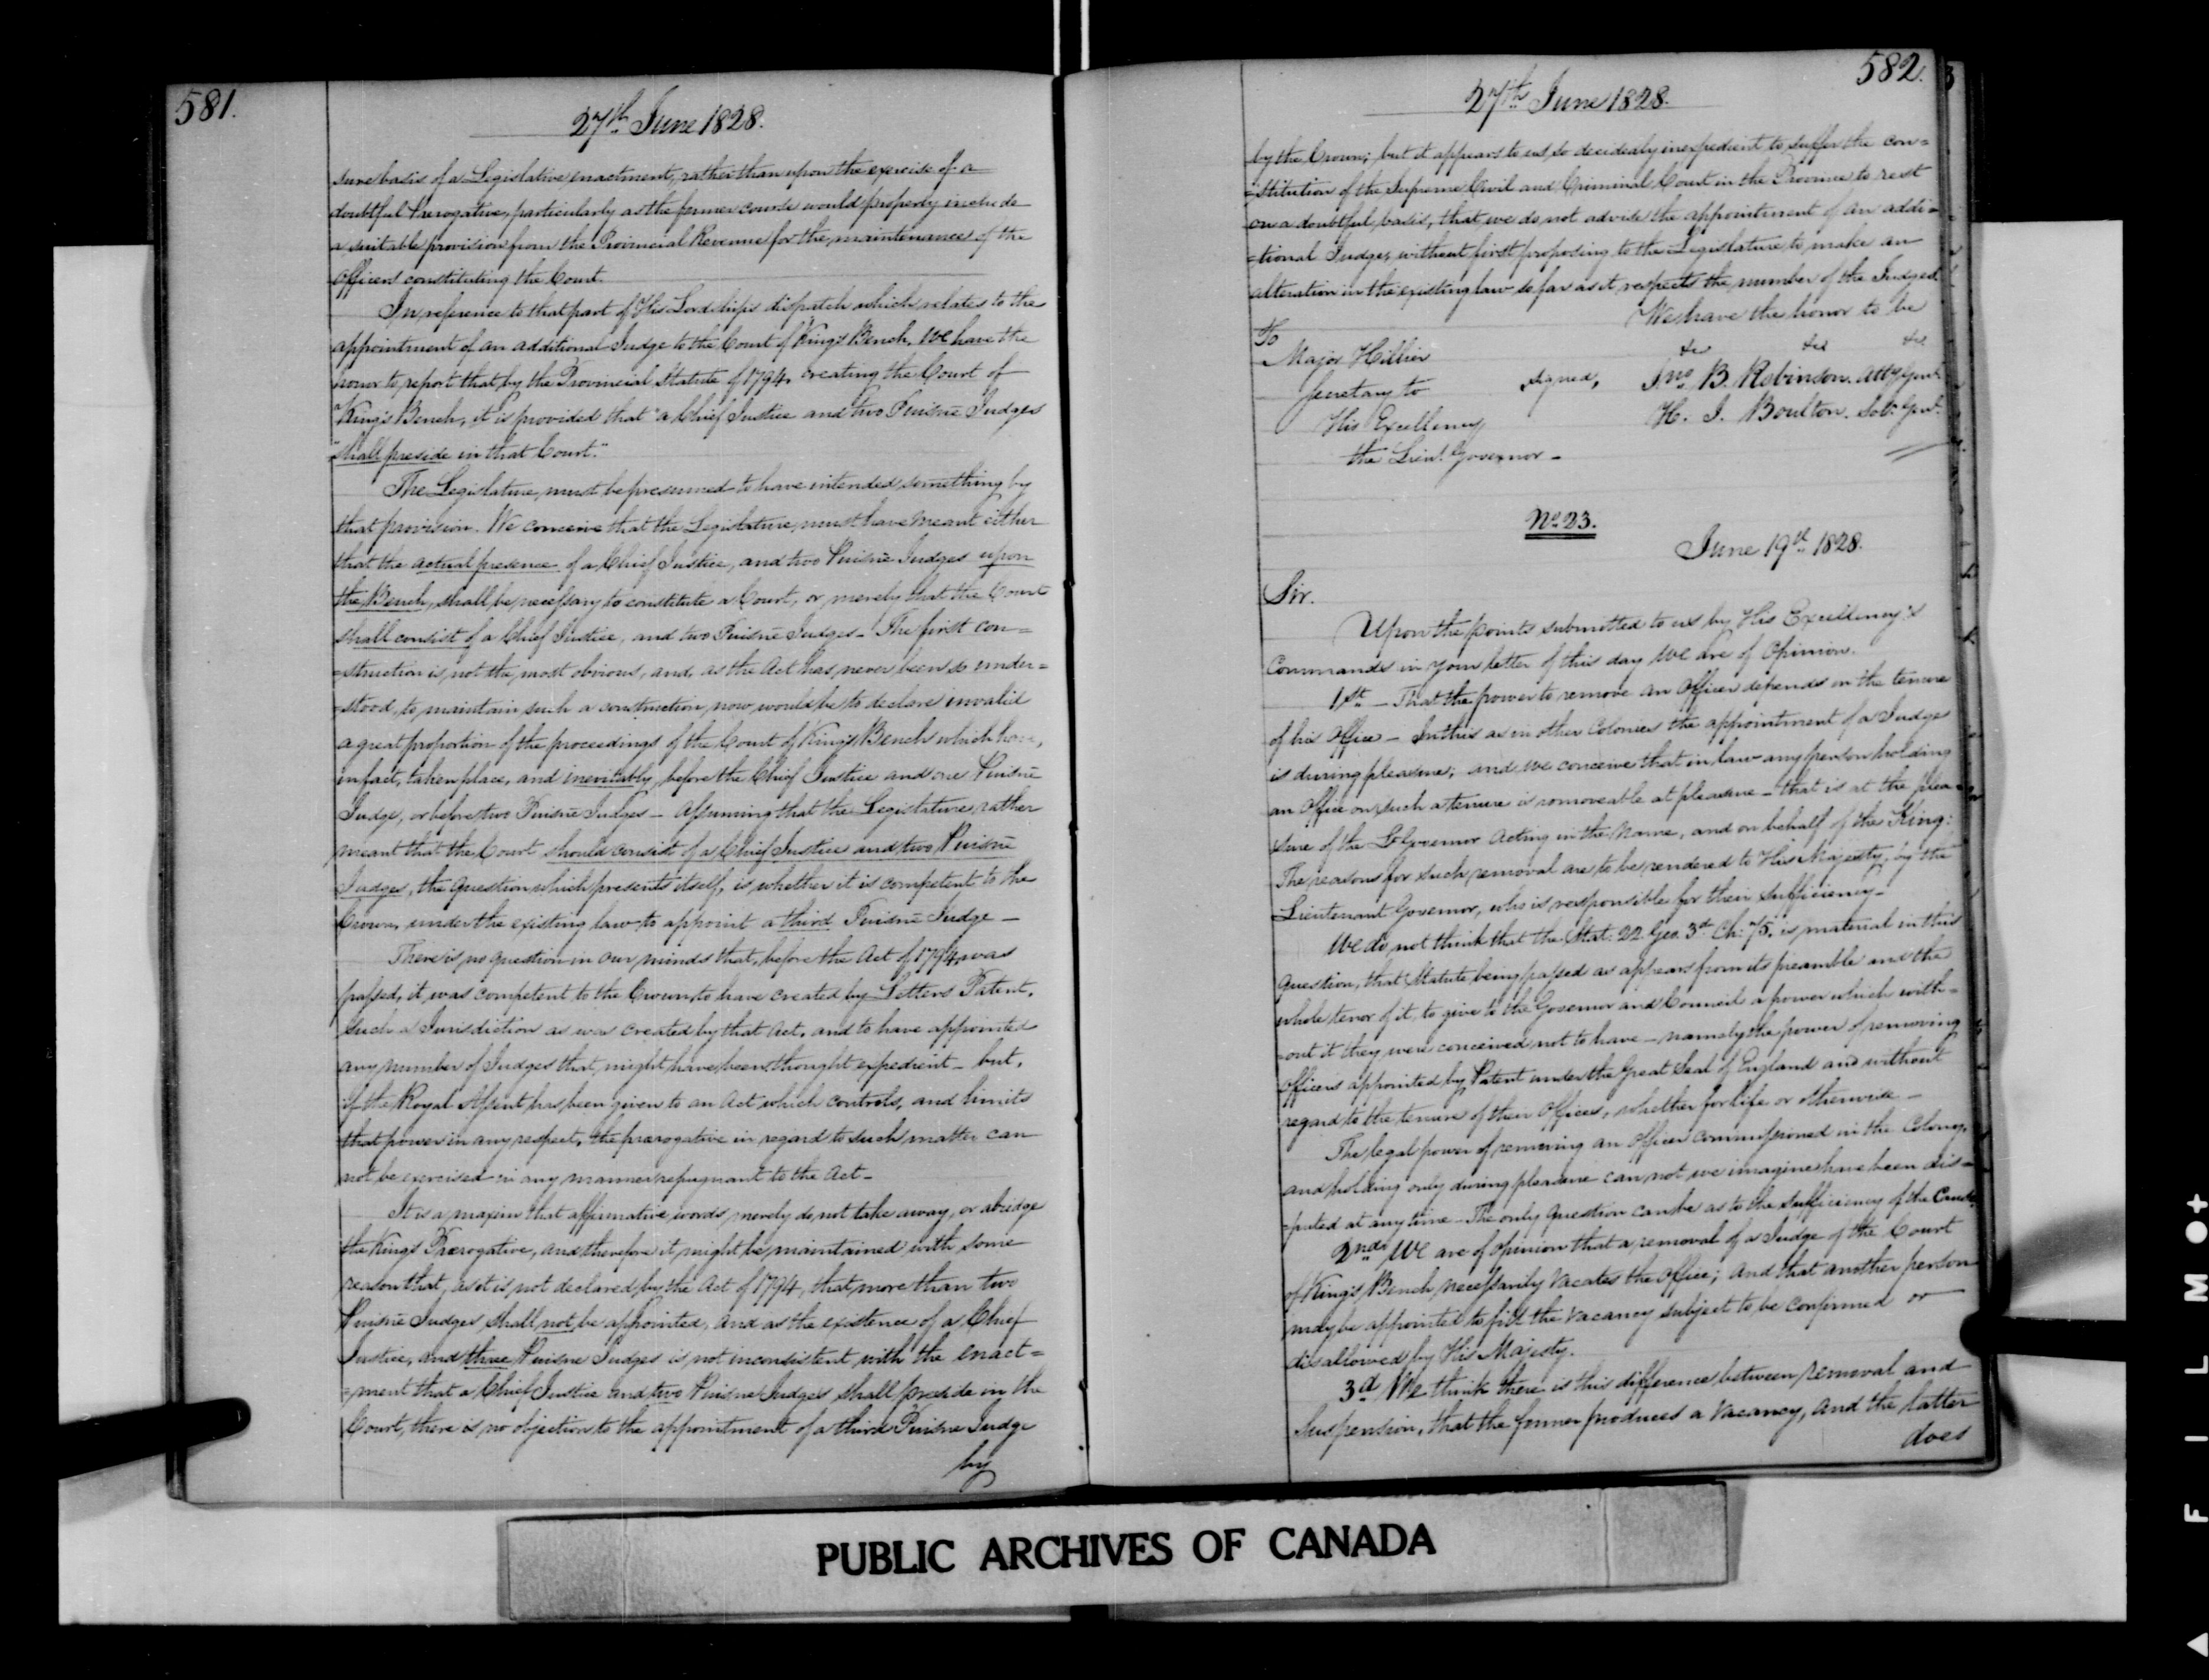 581.
27th June 1828.
sure basis of a Legislative enactment, rather than upon the exercise of a
doubtful Prerogative, particularly as the former course would properly include
a suitable provision from the Provincial Revenue for the maintenance of the
Officers constituting the Court.
In reference to that part of His Lordships dispatch which relates to the
appointment of an additional Judge to the Court of King's Bench, We have the
honor to report that by the Provincial Statute of 1794, creating the Court of
King's Bench, it is provided that "a Chief Justice and two Puisne Judges
"shall preside in that Court."
The Legislature, must be presumed to have intended something by
that provision. We conceive that the Legislature, must have meant either
that the actual presence of a Chief Justice, and two Puisne Judges upon
the Bench, shall be necessary to constitute a Court, or merely that the Court
shall consist of a Chief Justice, and two Puisne Judges - The first con=
=struction is not the most obvious, and, as the Act has never been so under=
=stood, to maintain such a construction now, would be to declare invalid
a great proportion of the proceedings of the Court of King's Bench which have,
in fact, taken place, and inevitably before the Chief Justice and one Puisne
Judge, or before two Puisne Judges - Assuming that the Legislature rather
meant that the Court should consist of a Chief Justice and two Puisne
Judges, the question which presents itself, is whether it is competent to the
Crown, under the existing law to appoint a third Puisne Judge -
There is no question in our minds that, before the Act of 1794 was
passed, it was competent to the Crown to have created by Letters Patent,
such a Jurisdiction as was created by that Act, and to have appointed
any number of Judges that might have been thought expedient - but,
if the Royal Assent has been given to an Act which controls, and limits
that power in any respect, the prerogative in regard to such matter can
not be exercised in any manner repugnant to the Act -
It is a maxim that affirmative words, merely do not take away, or abridge
the King's Prerogative, and therefore it might be maintained with some
reason that, as it is not declared by the Act of 1794, that more than two
Puisne Judges shall not be appointed, and as the existence of a Chief
Justice, and three Puisne Judges is not inconsistent with the enact=
=ment that a Chief Justice and two Puisne Judges shall preside in the
Court, there is no objection to the appointment of a third Puisne Judge
by
582.
27th June 1828.
by the Crown; but it appears to us so decidedly inexpedient to suffer the con=
=stitution of the Supreme Civil and Criminal Court in the Province to rest
on a doubtful basis, that we do not advise the appointment of an addi=
=tional Judge, without first proposing to the Legislature to make an
alteration in the existing law so far as it respects the number of the Judges.
We have the honor to be
&c &c &c
To
Major Hillier
Secretary to
His Excellency
the Lieut. Governor -
signed, Jno B. Robinson. Atty Genl.
H. J. Boulton. Solr. Genl.
No. 23.
June 19th 1828.
Sir.
Upon the points submitted to us by His Excellency's
Commands in your letter of this day We are of Opinion.
1st - That the power to remove an Officer depends on the tenure
of his Office - In this as in other Colonies the appointment of a Judge
is during pleasure; and we conceive that in law any person holding
an Office on such a tenure is removeable at pleasure - that is at the plea=
sure of the Lt Governor Acting in the Name, and on behalf of the King:
The reasons for such removal are to be rendered to His Majesty, by the
Lieutenant Governor, who is responsible for their sufficiency -
We do not think that the Stat: 22 Geo. 3d Ch: 75. is material in this
question, that Statute being passed as appears from its preamble and the
whole tenor of it, to give to the Governor and Council a power which with=
=out it they were conceived not to have - namely the power of removing
Officers appointed by Patent under the Great Seal of England and without
regard to the tenure of their Offices, whether for life or otherwise -
The legal power of removing an Officer commissioned in the Colony,
and holding only during pleasure can not we imagine have been dis=
=puted at any time - The only question can be as to the sufficiency of the Cause.
2nd. We are of opinion that a removal of a Judge of the Court
of King's Bench necessarily vacates the Office; and that another person
may be appointed to fill the Vacancy subject to be confirmed or
disallowed by His Majesty.
3d We think there is this difference between removal and
Suspension, that the former produces a Vacancy, and the latter
does
PUBLIC ARCHIVES OF CANADA
FILM